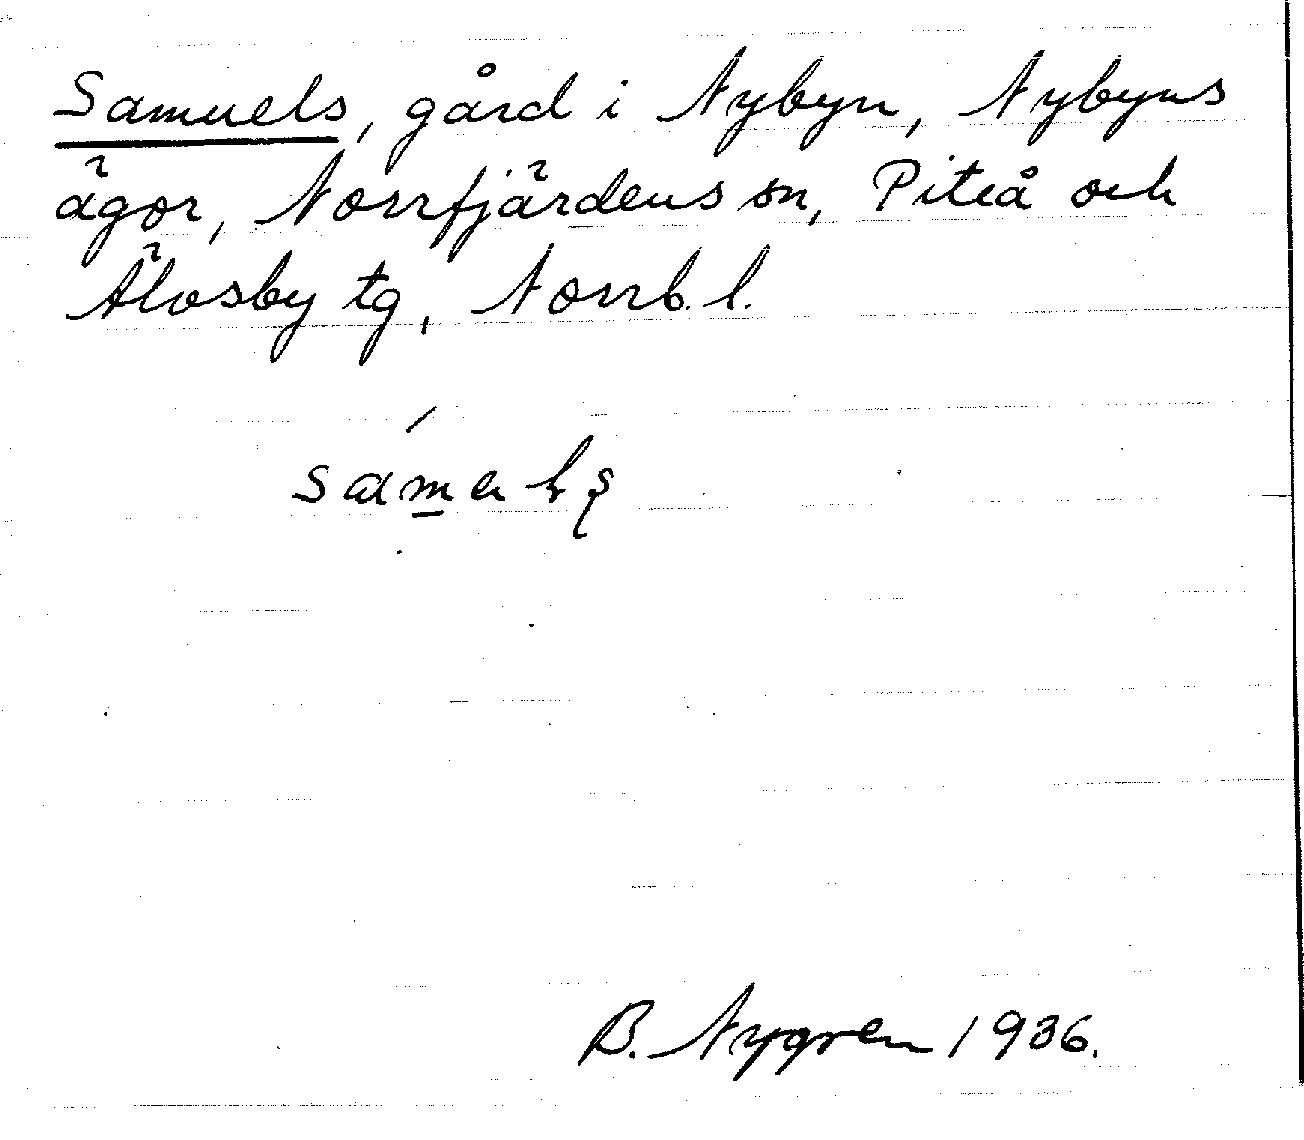 Samuels, gård i Nybyn, Nybyns
ägor, Norrfjärdens sn, Piteå och
Älvsby tg, Norrb. l.
B. Nygren 1936.